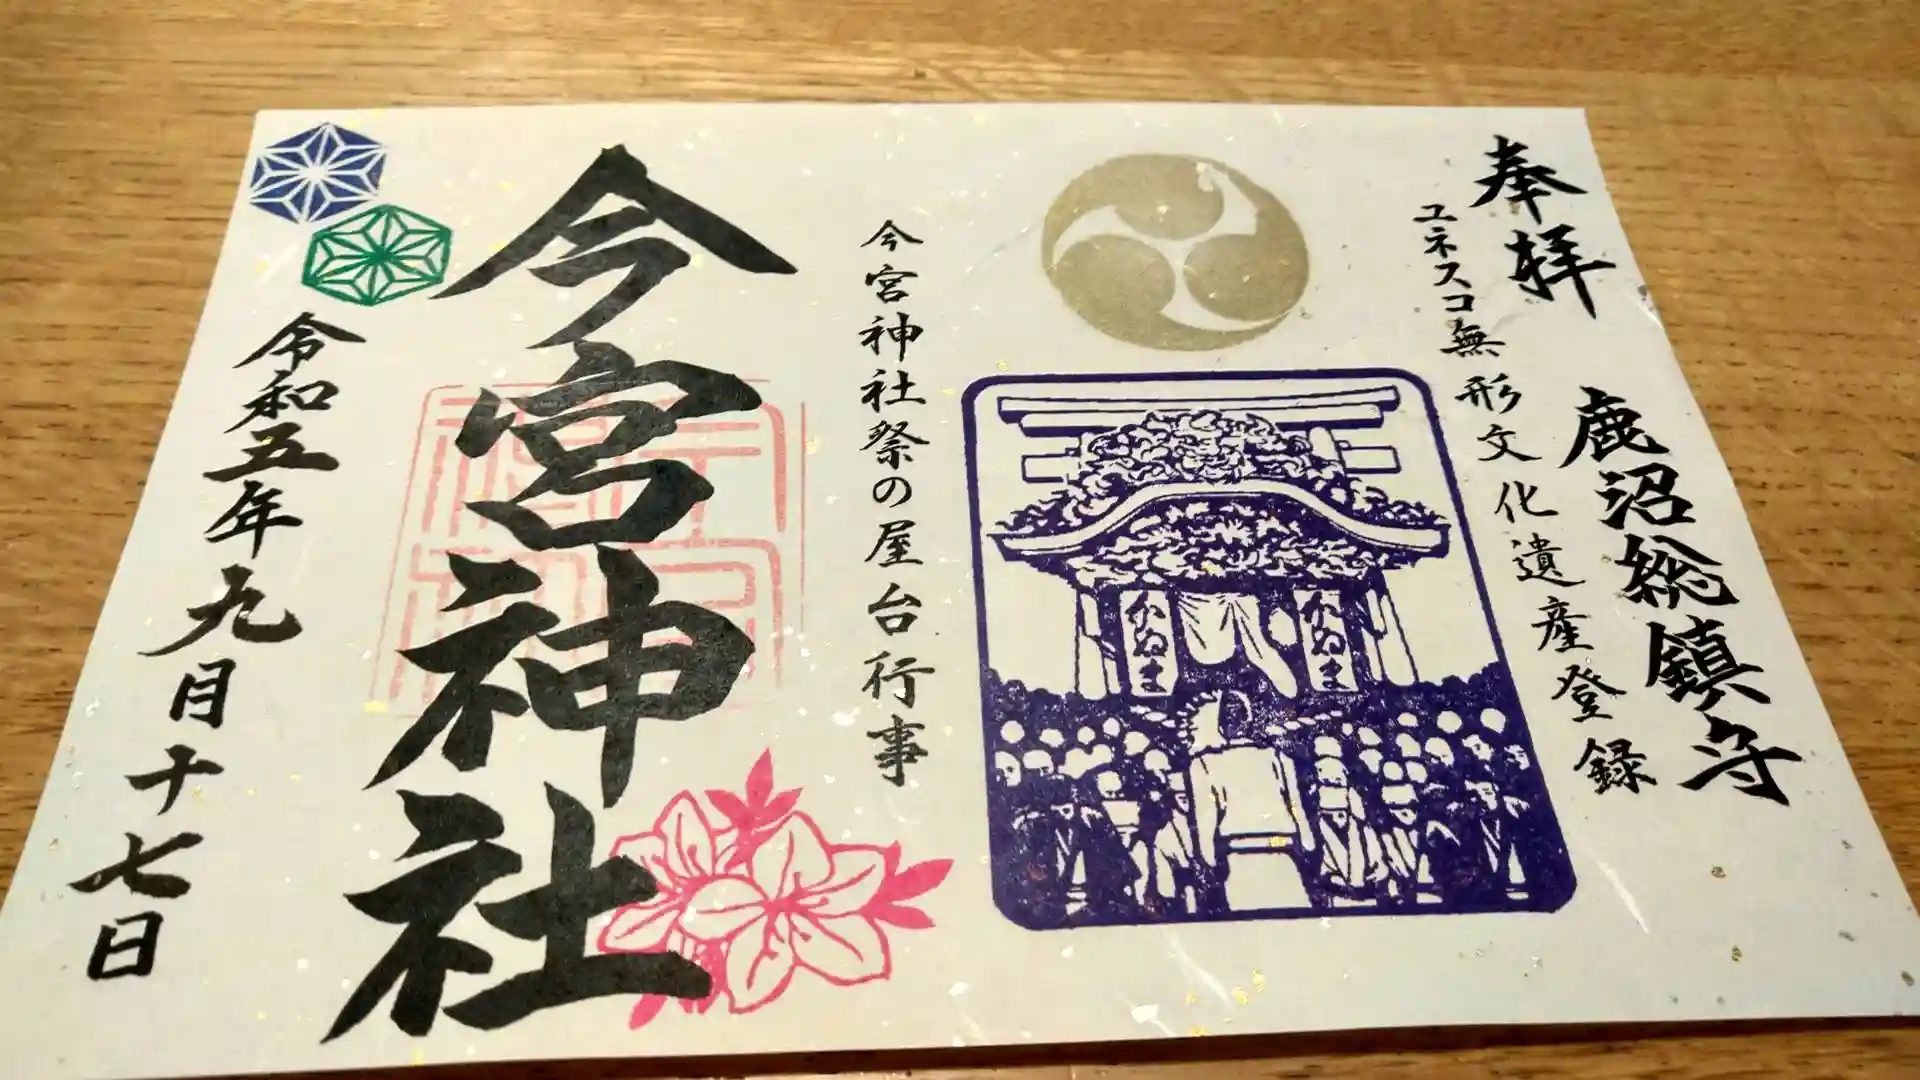 奉拝
鹿沼総鎮守
ユネスコ無形文化遺産登録
今宮神社祭の屋台行事
今宮神社
令和五年九月十七日